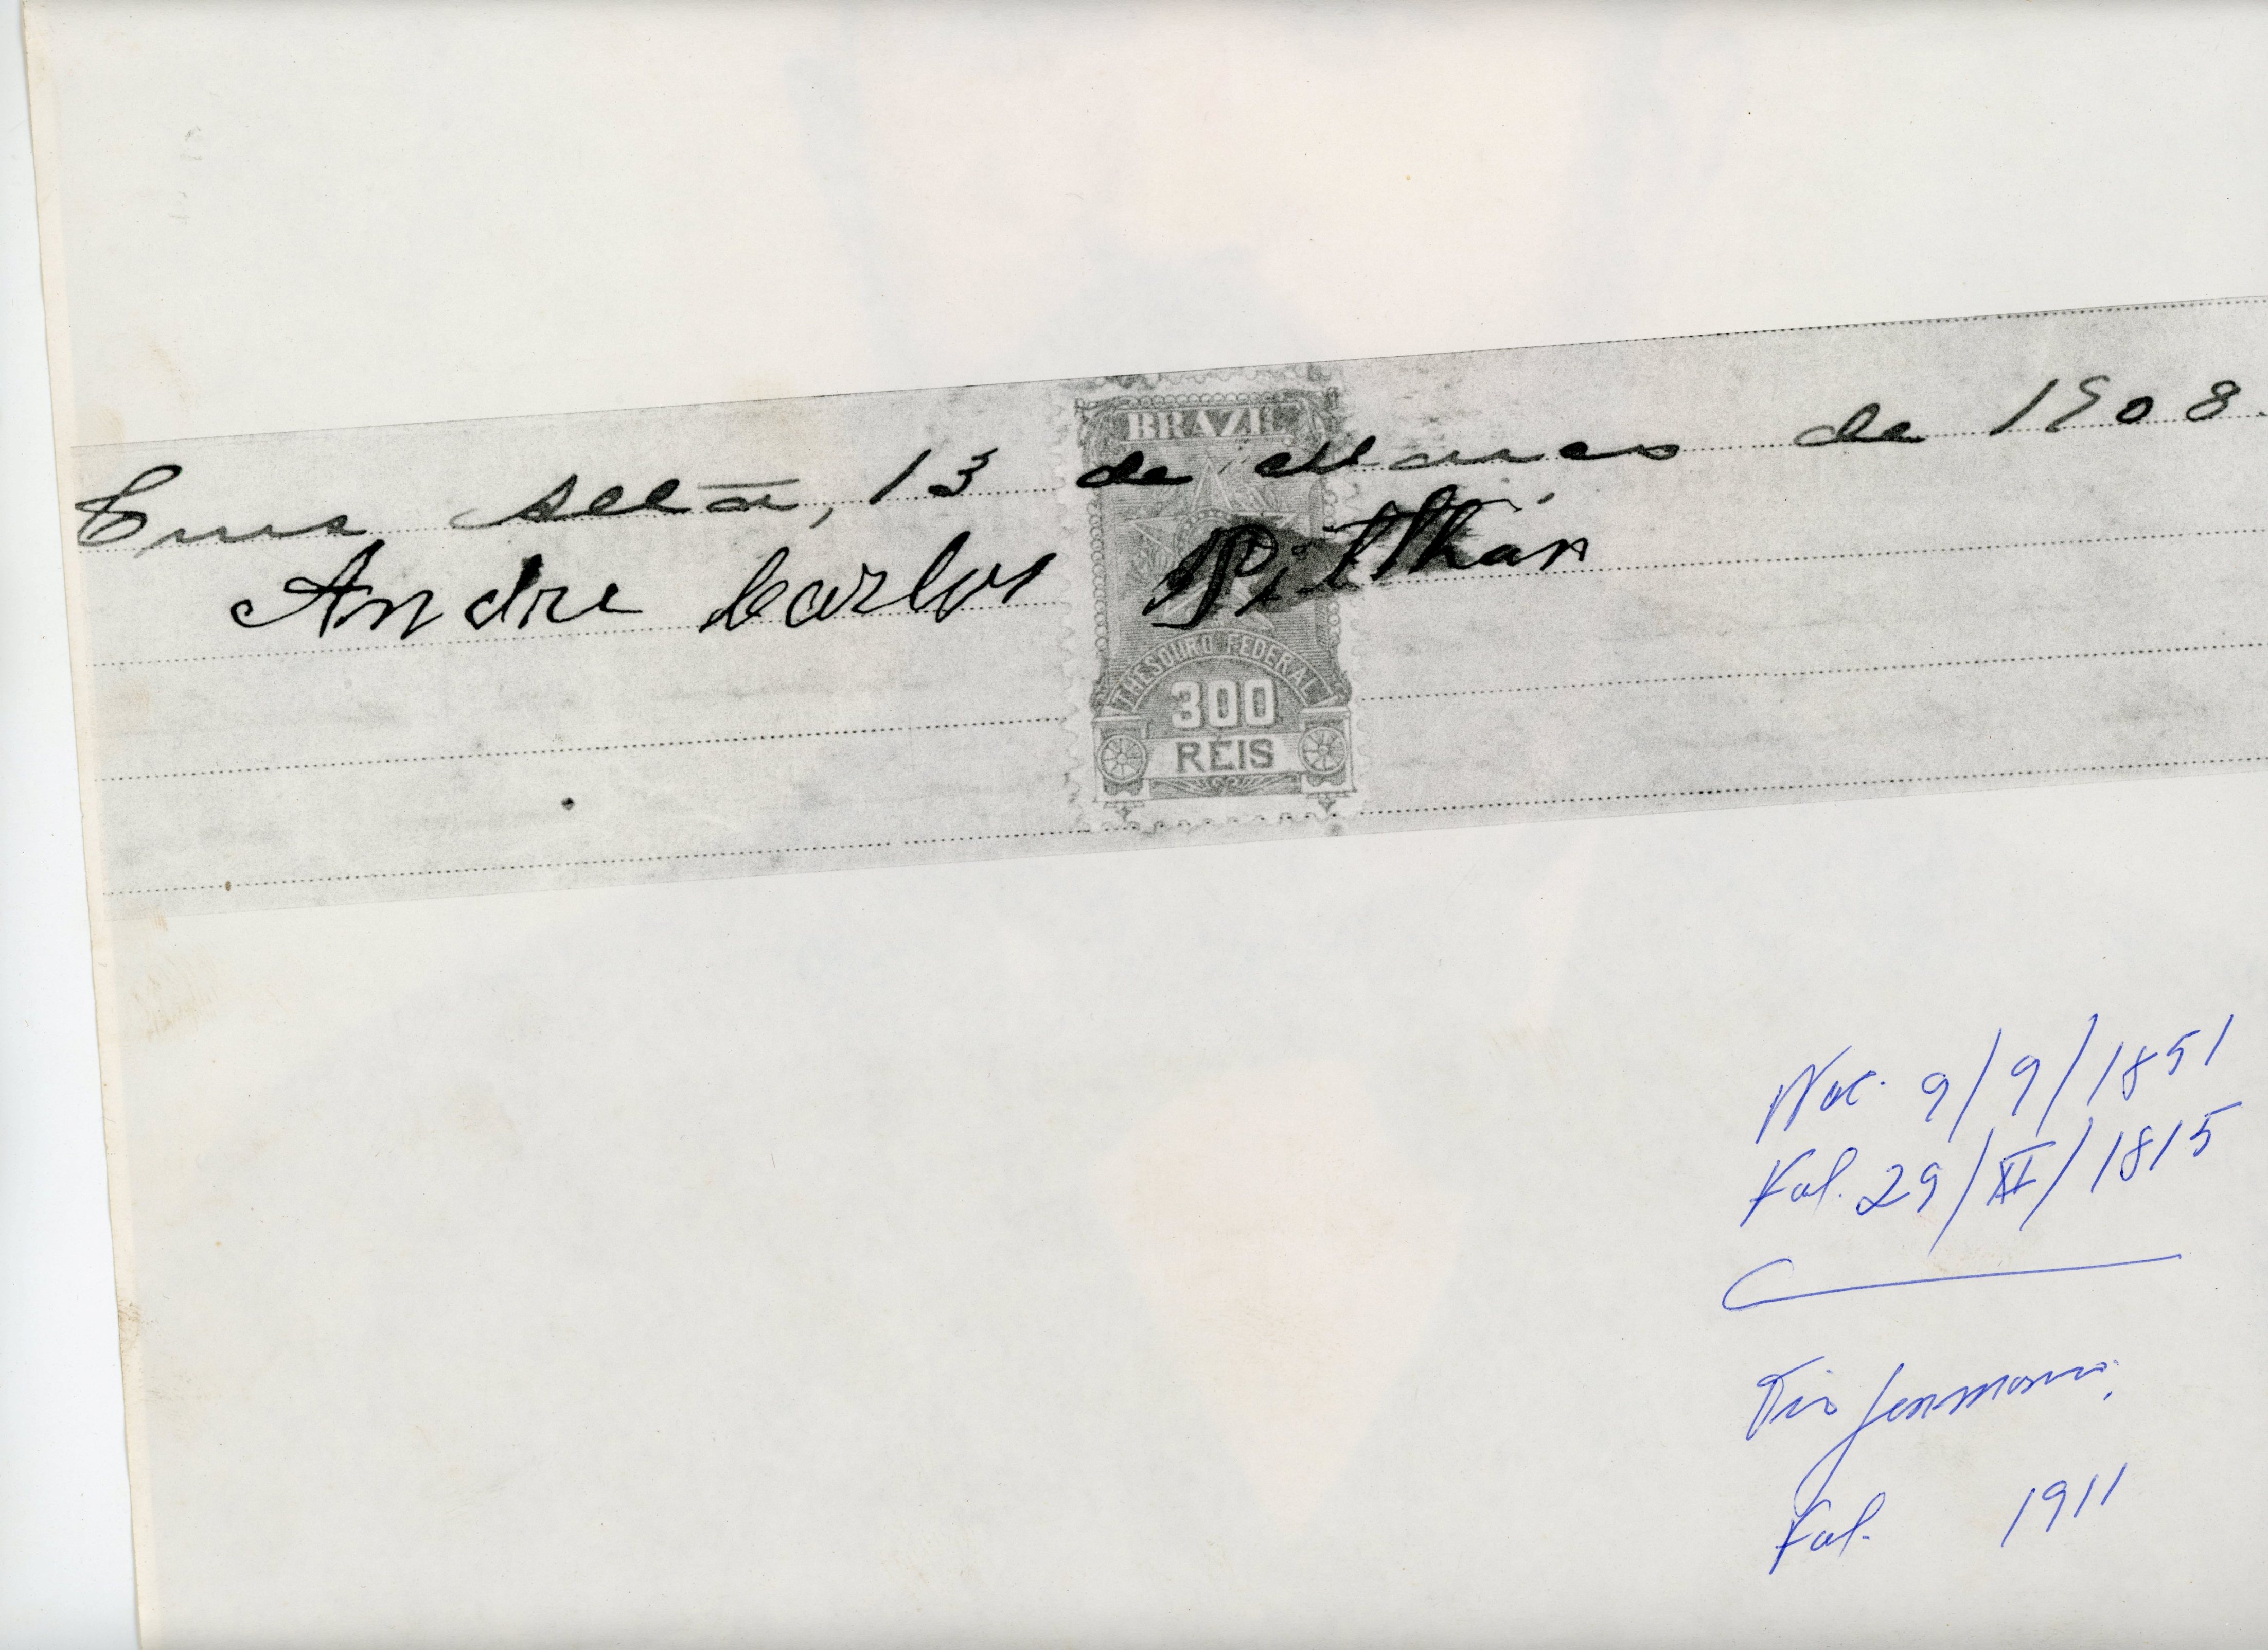 Cruz Alta, 13 de Março de 1908.
Andre Carlos Pilthan
BRAZIL
THESOURO FEDERAL
300
RÉIS
Nac. 9/9/1851
Fal. 29/XI/1815
Tio
Fal. 1911